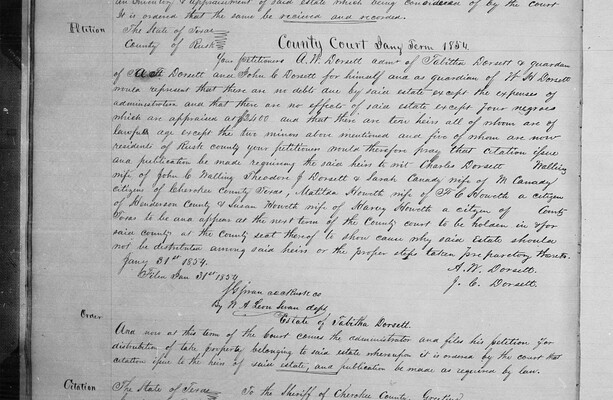 an Inventory & appraisement of said estate which being considered of by the court
It is ordered that the same be received and recorded.
Petition The State of Texas
County of Rusk County Court Jany Term 1854
Your petitioners A. W. Dorsett admr of Tabitha Dorsett & guardian
of Dorsett and John C Dorsett for himself and as guardian of W H Dorsett
would represent that there are no debts due by said estate except the expenses of
administration and that there are no effects of said estate except four negroes
which are appraised at $2600 and that there are ten heirs all of whom are of
lawfull age except the two minors above mentioned and five of whom are now
residents of Rusk county your petitioners would therefore pray that citation issue
and publication be made requiring the said heirs to wit Charles Dorsett Walling
wife of John C Walling Theodore J Dorsett & Sarah Canady wife of M Canady
citizen of Cherokee County Texas, Matilda Howeth wife of C Howeth a citizen
of Henderson County & Susan Howeth wife of Harvey Howeth a citizen of County
Texas to be and appear at the next term of the County court to be holden in & for
said county at the county seat thereof to show cause why said Estate should
not be distributed among said heirs or the proper steps taken preparatory thereto.
Jany 31st 1854. A. W. Dorsett.
Filed Jan 31st 1854 J. C. Dorsett.
By W. A Leon Swan dept
Order Estate of Tabitha Dorsett.
And now at this term of the Court comes the administrator and files his petition for
distribution of the property belonging to said estate whereupon it is ordered by the court that
citation issue to the heirs of said estate, and publication be made as required by law.
Citation The State of Texas To the Sheriff of Cherokee County, Greeting